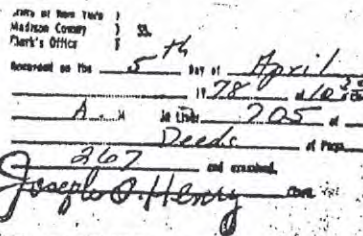 State of New York )
Madison County } SS.
Clerk's Office }
Recorded on the 5th Day of April
1978 at 10
A. M in Liber 705 of
Deeds at Page
267 and examined.
Joseph O. Henry Clerk